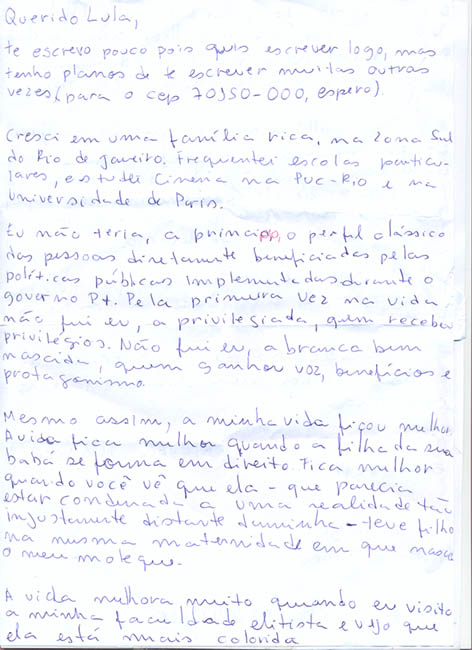 Querido Lula,
te escrevo pouco pois quis escrever logo, mas
tenho planos de te escrever muitas outras
vezes (para o cep 70150-000, espero).
Cresci em uma família rica, na Zona Sul
do Rio de Janeiro. Frequentei escolas particu-
lares, estudei Cinema na PUC-Rio e na
Universidade de Paris.
Eu não teria, a princípio, o perfil clássico
das pessoas diretamente beneficiadas pelas
políticas públicas implementadas durante o
governo PT. Pela primeira vez na vida
não fui eu, a privilegiada, quem recebeu
privilégios. Não fui eu, a branca bem
nascida, quem ganhou voz, benefícios e
protagonismo.
Mesmo assim, a minha vida ficou melhor.
A vida fica melhor quando a filha da sua
babá se forma em direito. Fica melhor
quando você vê que ela - que parecia
estar condenada a uma realidade tão
injustamente distante da minha - teve filho
na mesma maternidade em que nasceu
o meu moleque.
A vida melhora muito quando eu visito
a minha faculdade elitista e vejo que
ela está mais colorida